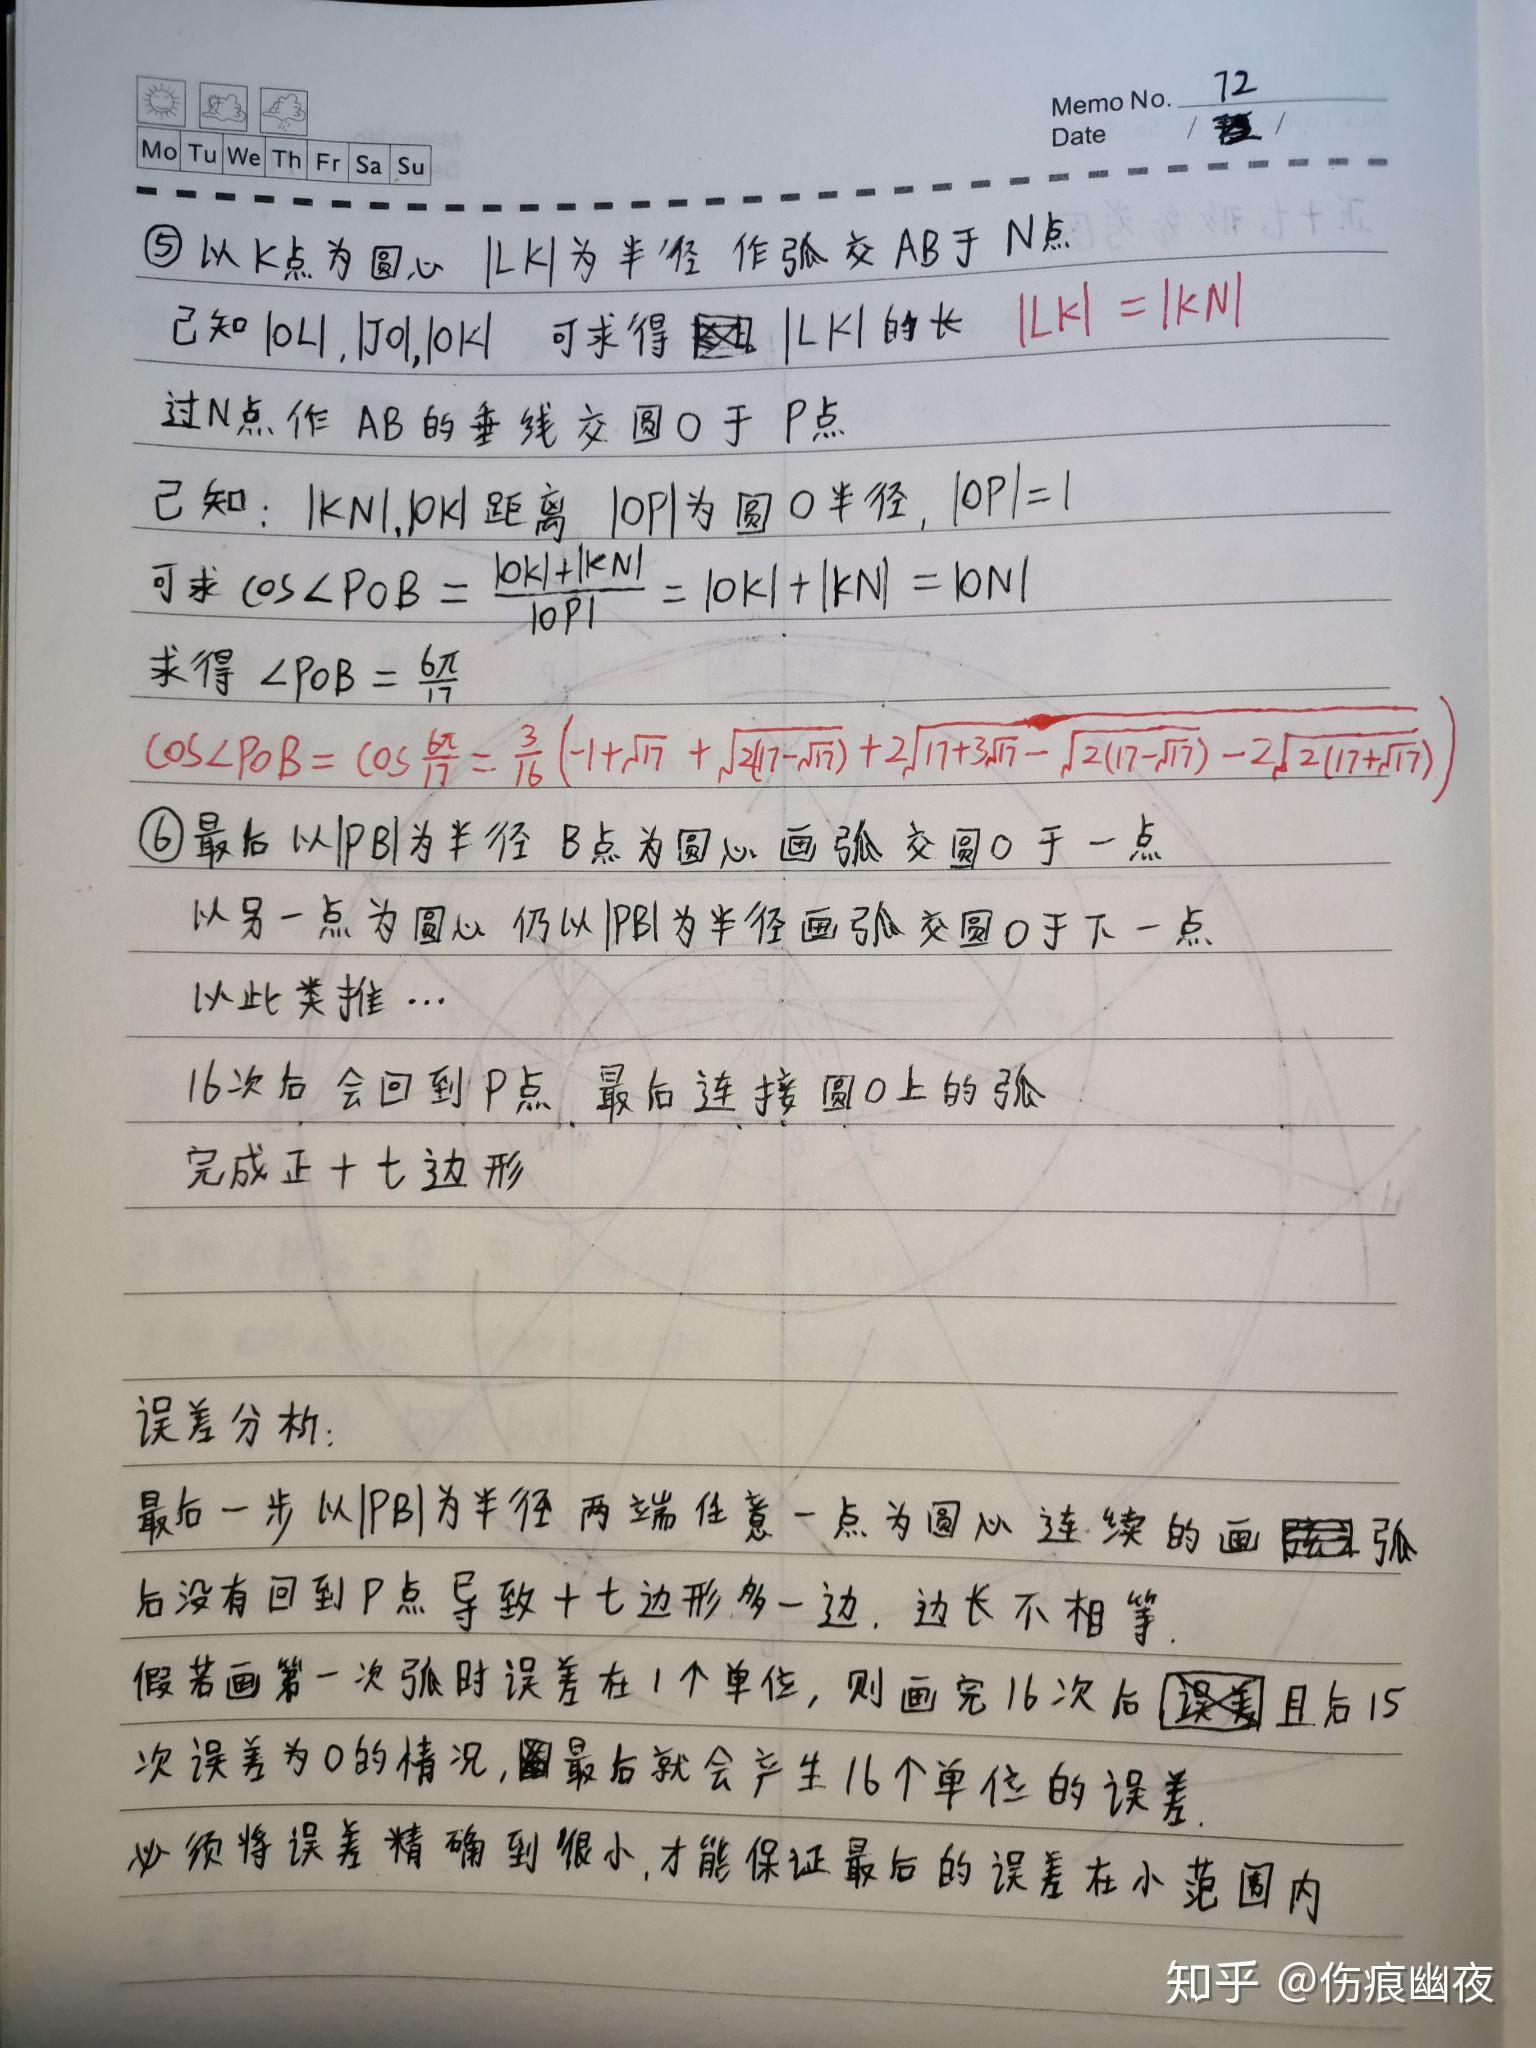 Memo No. 72
Date / /
Mo Tu We Th Fr Sa Su
⑤以K点为圆心 |LK|为半径 作弧交AB于N点
已知|OL|,|JO|,|OK| 可求得 |LK|的长 |LK|=|KN|
过N点作AB的垂线交圆O于P点
已知:|KN|,|OK|距离 |OP|为圆O半径,|OP|=1
可求cos∠POB=(|OK|+|KN|)/|OP|=|OK|+|KN|=|ON|
求得∠POB=6π/17
cos∠POB=cos6π/17=3/16(-1+√17+√(2(17-√17))+2√(17+3√17-√(2(17-√17))-2√(2(17+√17))))
⑥最后以|PB|为半径 B点为圆心画弧交圆O于一点
以另一点为圆心仍以|PB|为半径画弧交圆O于下一点
以此类推…
16次后会回到P点.最后连接圆O上的弧
完成正十七边形
误差分析:
最后一步以|PB|为半径两端任意一点为圆心连续的画弧
后没有回到P点导致十七边形多一边.边长不相等.
假若画第一次弧时误差在1个单位,则画完16次后且后15
次误差为0的情况,最后就会产生16个单位的误差.
必须将误差精确到很小,才能保证最后的误差在小范围内
知乎 @伤痕幽夜